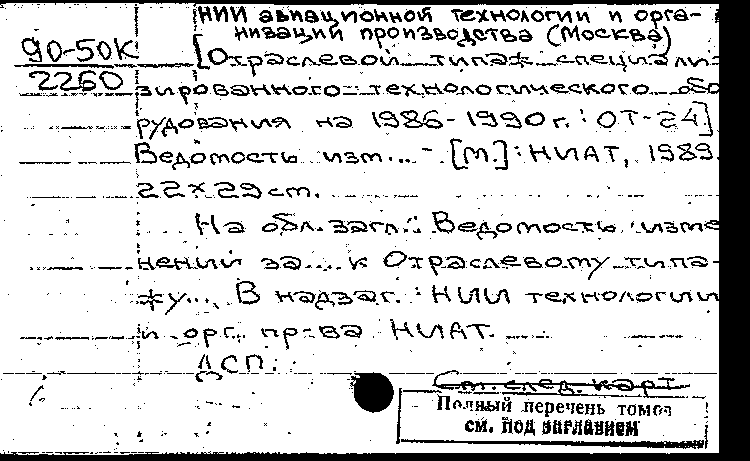 НИИ авиационной технологии и орга-
низаций производства (Москва)
90-50К
2260
[Отраслевой типаж специали-
зированного технологического обо
рудования на 1986-1990г.: ОТ-24]
Ведомость изм... - [М.]: НИАТ, 1989.
22×29 cm.
На обл. загл.: Ведомость изме
нений за.... к Отраслевому типа-
жу... В надзаг.: НИИ технологии
и орг. пр-ва НИАТ.
ДСП.
См. след. карт
Полный перечень томов
см. под заглавием